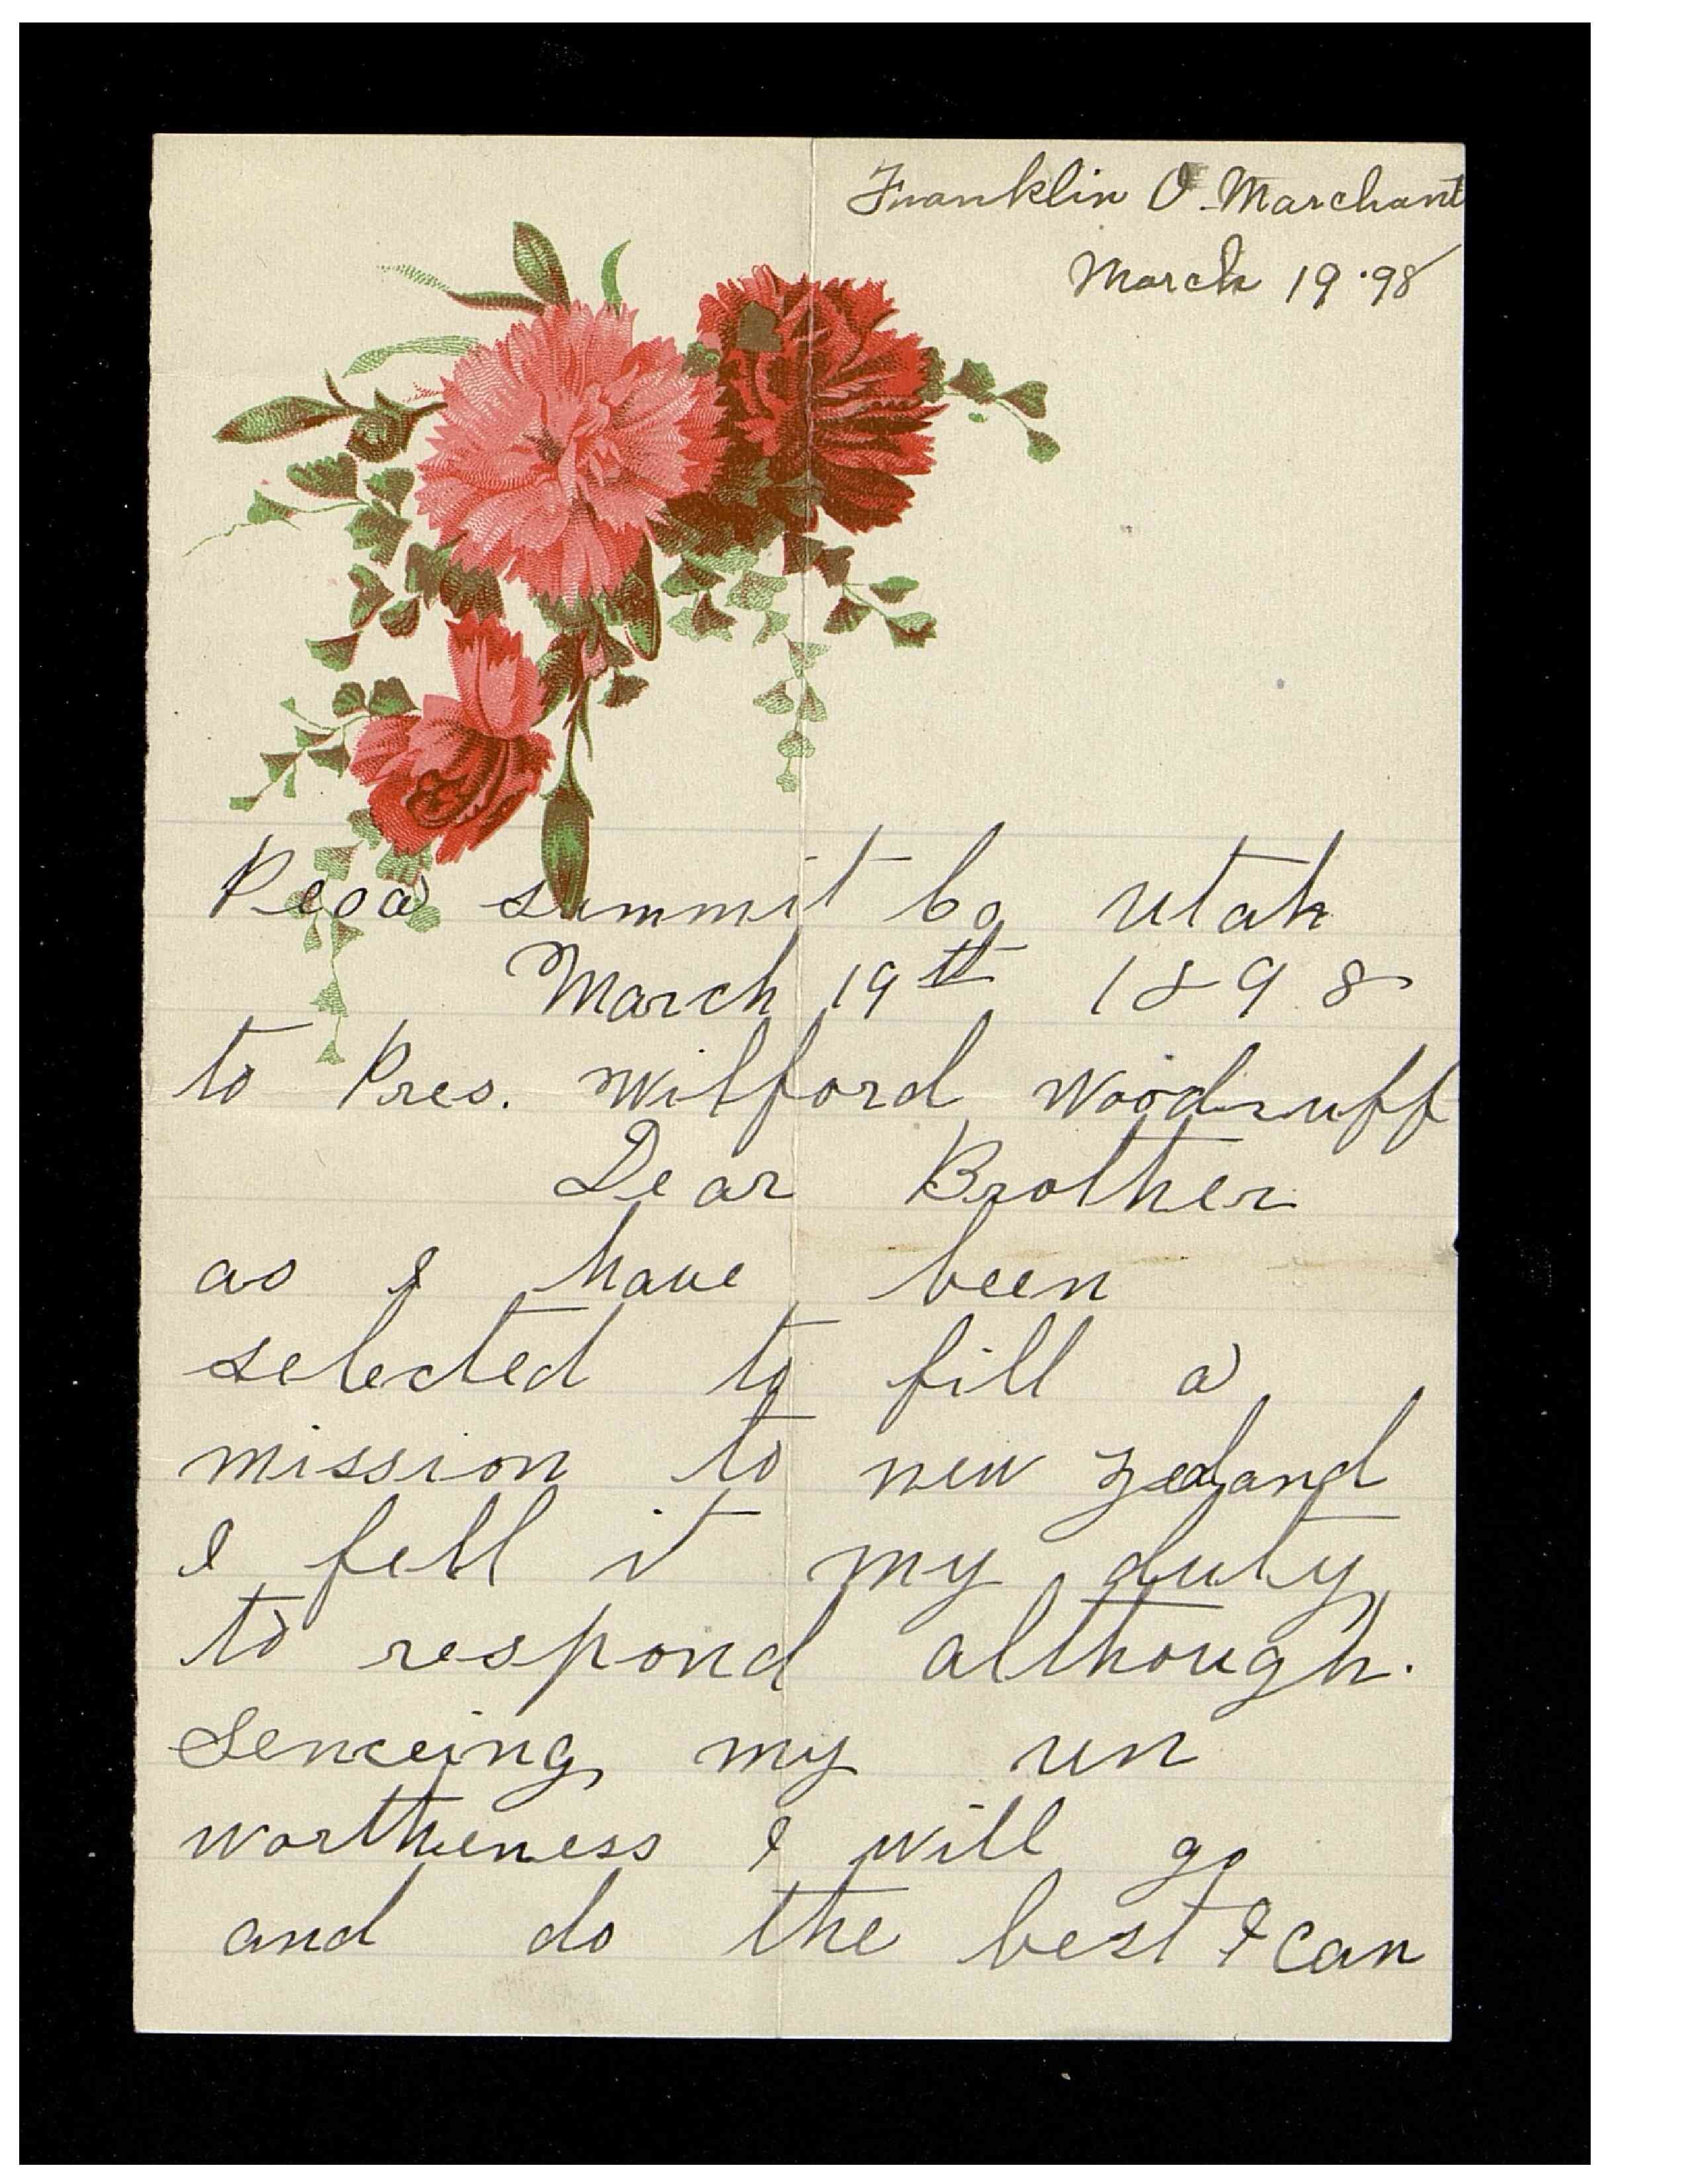 Franklin O. Marchant
March 19 '98
Peoa summit Co utah
March 19th 1898
to Pres. Wilford Woodruff
Dear Brother
as I have been
selected to fill a
mission to new Zealand
I fell it my duty
to respond although.
Senceing my un
wortheness I will go
and do the best I can